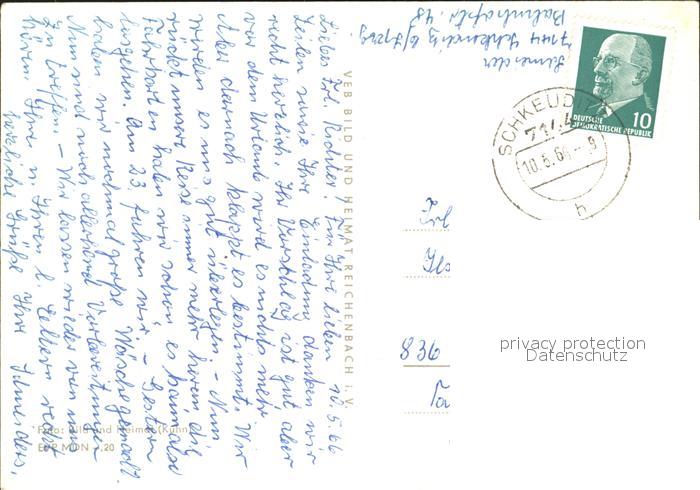 10.5.66
Liebes Frl. Richter! Für Ihre lieben
Zeilen sowie Ihre Einladung danken wir
recht herzlich. Ihr Vorschlag ist gut aber
vor dem Urlaub wird es nichts mehr.
Aber danach klappt es bestimmt. Wir
werden es uns gut überlegen. – Nun
rückt unsere Reise immer mehr heran, die
Fahrkarten haben wir schon es kann also
losgehen. Am 23. fahren wir. – Gestern
haben wir nochmal große Wäsche gemacht.
Nun sind noch allerhand Vorbereitungen
zu treffen. – Wir lassen wieder von uns
hören. Ihnen u. Ihren l. Eltern recht
herzliche Grüße Ihre Schneiders.
VEB BILD UND HEIMAT REICHENBACH I. V.
Foto: Bild und Heimat (Kuhn)
Schneider
7144 Schkeuditz b/Leipzig
Bahnhofstr. 48
10
DEUTSCHE
DEMOKRATISCHE REPUBLIK
SCHKEUDITZ
7144
10.5.66
h
836
privacy protection
Datenschutz